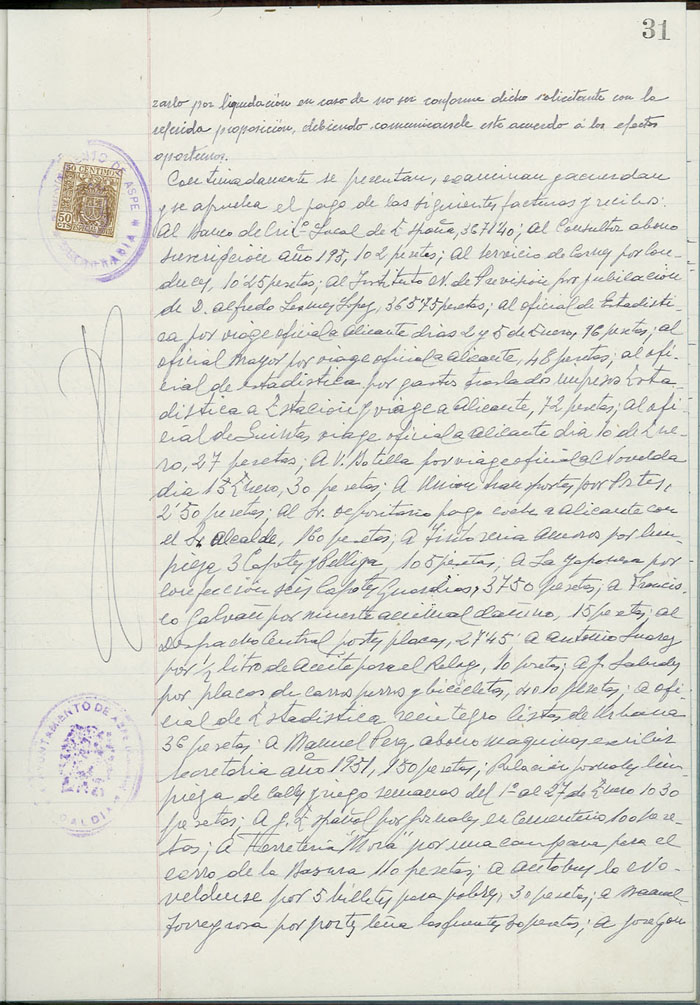 31
zarlo por liquidación en caso de no ser conforme dicho solicitante con la
referida proposición, debiendo comunicarsele este acuerdo á los efectos
oportunos.
Continuadamente se presentan, examinan y acuerdan
y se aprueba el pago de las siguientes facturas y recibos:
Al Banco de Local de España, 367'40; al Consultor abono
suscripcion año 195, 102 pesetas; al servicio de Carnes por
10'25 pesetas; al Instituto N. de Prevision por jubilación
de D. Alfredo Lopez, 365'75 pesetas; al oficial de Estadisti-
ca por viage oficial a Alicante dias 2 y 5 de Enero, 96 pesetas; al
oficial Mayor por viage oficial a Alicante, 48 pesetas; al ofi-
cial de estadistica por gastos traslado impresos Esta-
distica a Estación y viage a Alicante, 72 pesetas; al ofi-
cial de Quintas, viage oficial a Alicante dia 10 de Ene-
ro, 27 pesetas; A V. Botella por viage oficial a Novelda
dia 15 Enero, 30 pesetas; a Union transportes por Portes,
2'50 pesetas; al Sr. depositario pago coche a Alicante con
el Sr. Alcalde, 160 pesetas; a Tintoreria Amoros por lim-
pieza 3 Capotes y Pelliza, 105 pesetas; a La Japonesa por
confección seis Capotes Guardias, 3750 pesetas; a Francis-
co Galvañ por muerte animal dañino, 15 pesetas; al
Despacho Central portes placas, 27'45 a Antonio Suarez
por ½ litro de Aceite para el Reloj, 10 pesetas; a J.
por placas de carros perros y bicicletas, 4010 pesetas; a ofi-
cial de Estadistica reintegro listas de Urbana
36 pesetas; a Manuel Perez, abono maquinas escribir
secretaria año 1951, 150 pesetas; Relación jornales lim-
pieza de Calles y riego semanas del 1º al 27 de Enero 1030
pesetas; A J. Español por jornales en Cementerio 100 pese-
tas; a Herreria "Mora" por una campana para el
carro de la Basura 110 pesetas; a autobus la No-
veldense por 5 billetes para pobres, 30 pesetas; a Manuel
Torregrosa por portes leña las fuentes 30 pesetas; a Jose
50 CENTIMOS
50
CTS
AYUNTAMIENTO DE ASPE
SECRETARIA
AYUNTAMIENTO DE ASPE
ALCALDIA